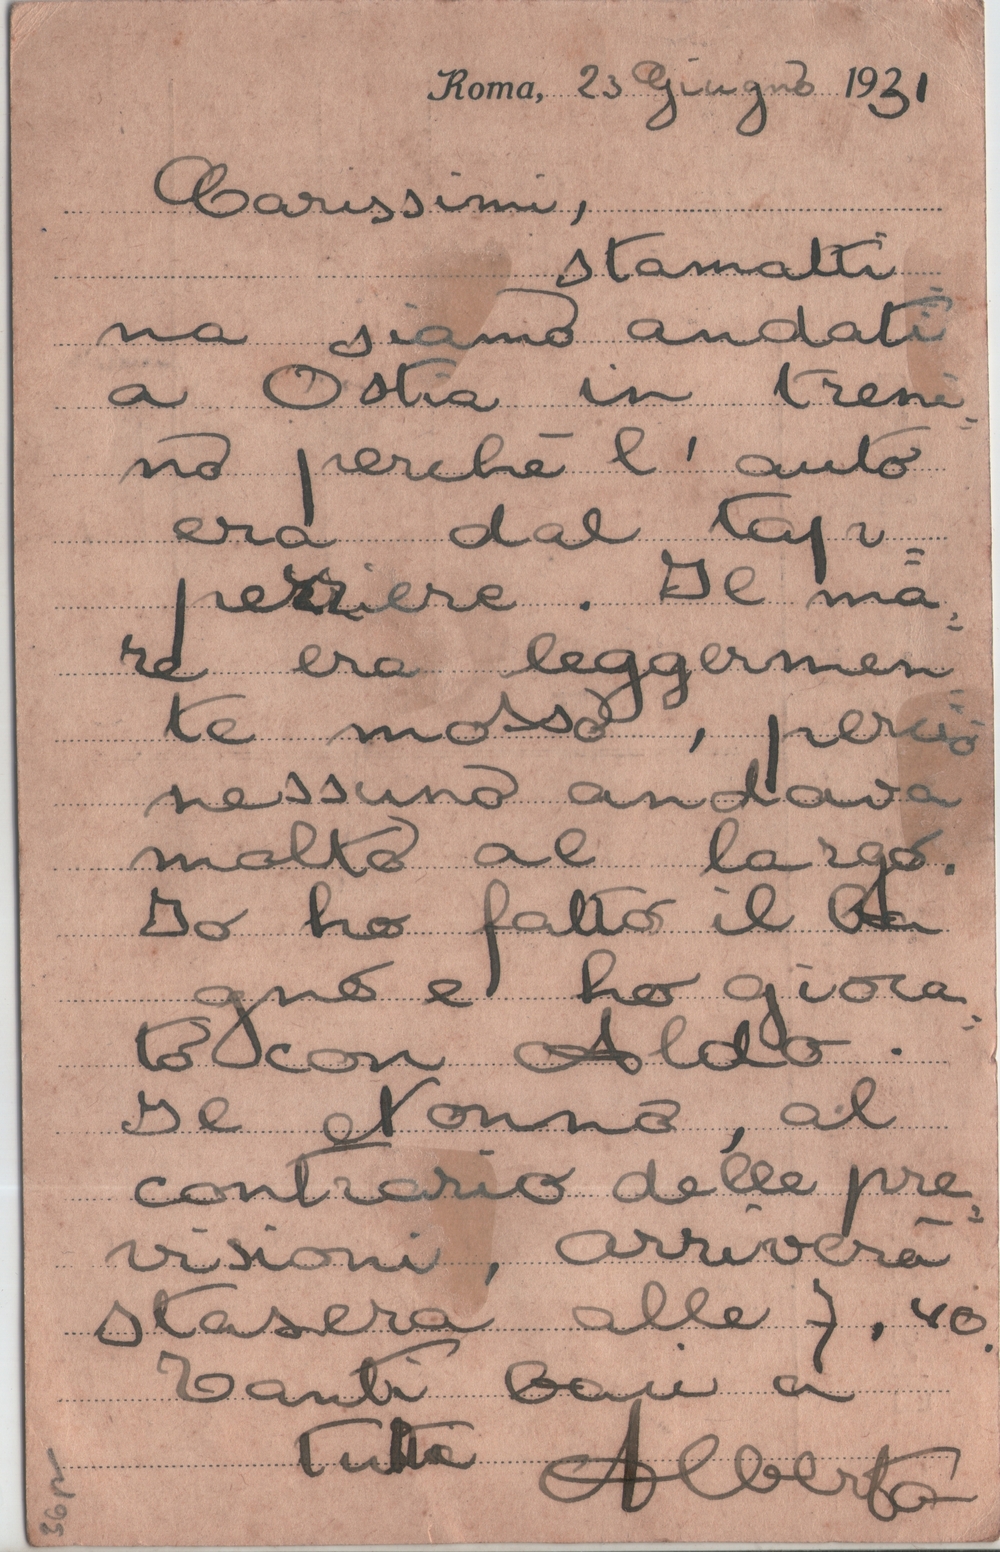 Roma, 23 Giugno 1931
Carissimi,
stamatti
na siamo andati
a Ostia in treni-
no perchè l'auto
era dal tap=
pezziere. Il ma=
re era leggermen
te mosso, perciò
nessuno andava
molto al largo.
Io ho fatto il ba
gno e ho gioca=
to con Aldo.
Il Nonno, al
contrario delle pre=
visioni, arriverà
stasera alle 7,40.
Tanti baci a
tutti Alberto